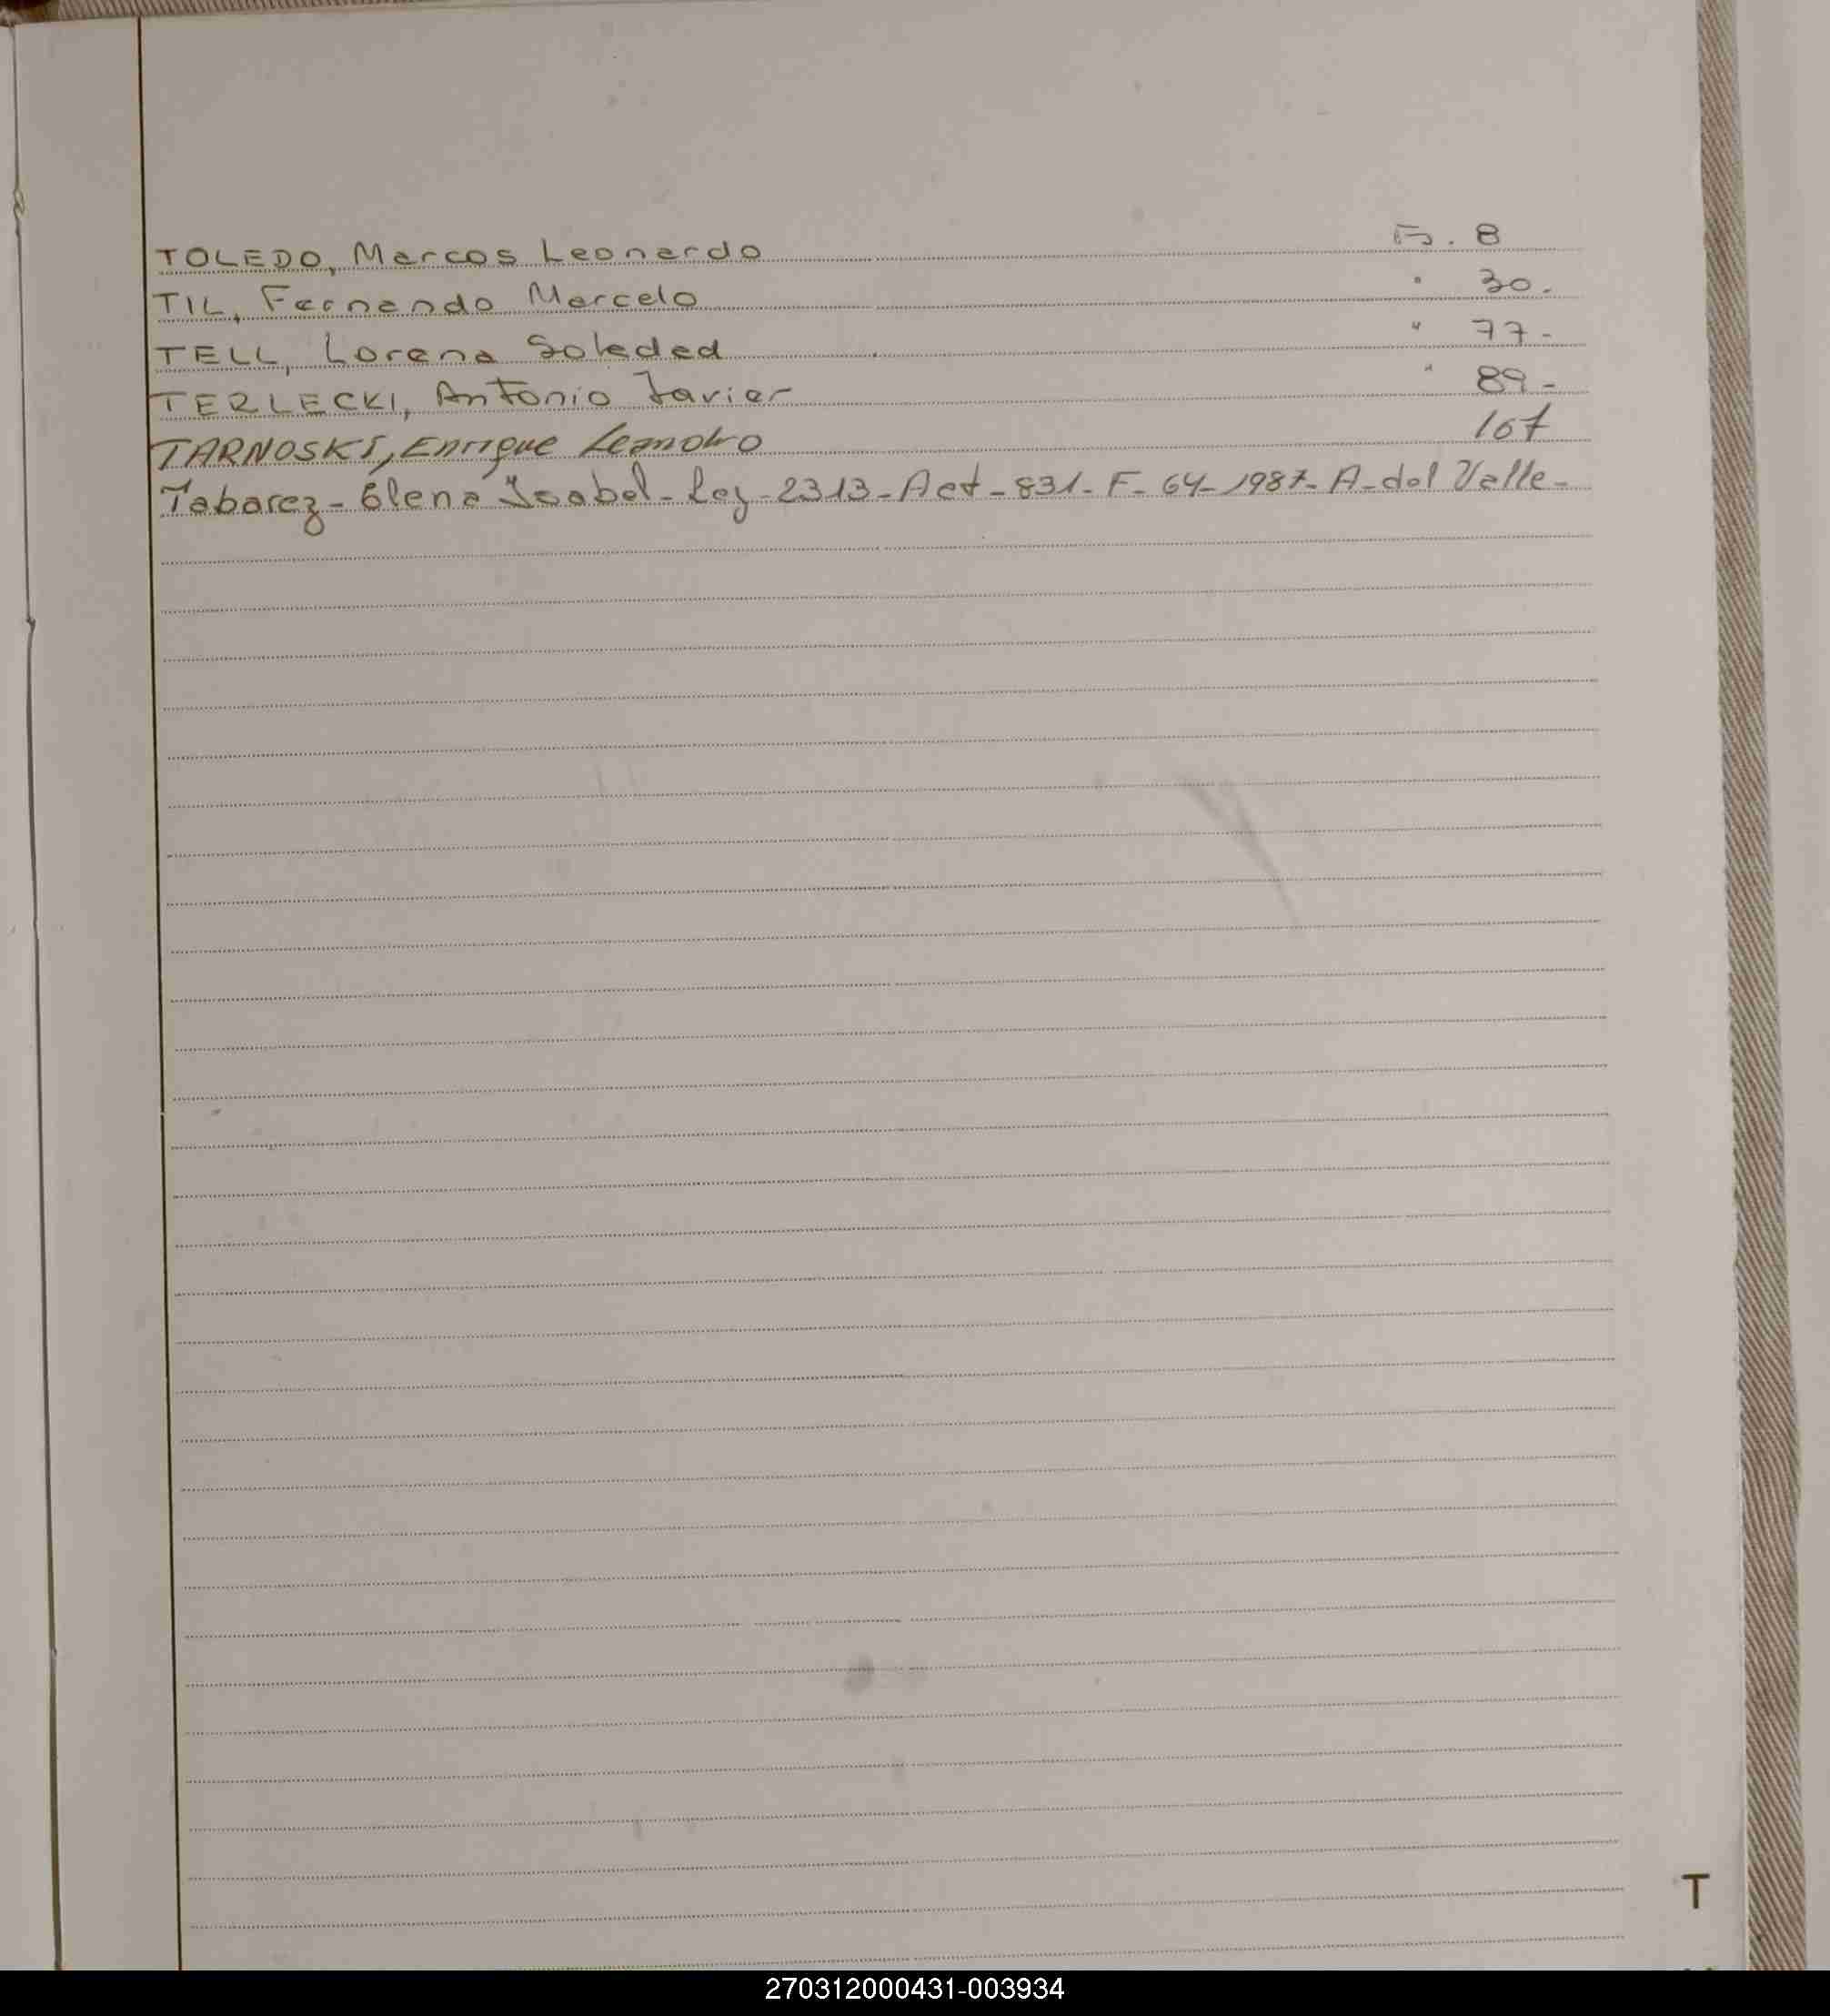 TOLEDO, Marcos Leonardo Fs. 8
TIL, Fernando Marcelo " 30.
TELL, Lorena Soledad " 77-
TERLECKI, Antonio Javier " 89-
TARNOSKI, Enrique Leandro 107
Tabarez - Elena Isabel - Ley - 2313 - Act - 831 - F - 64 - 1987 - A - del Valle -
T
270312000431-003934